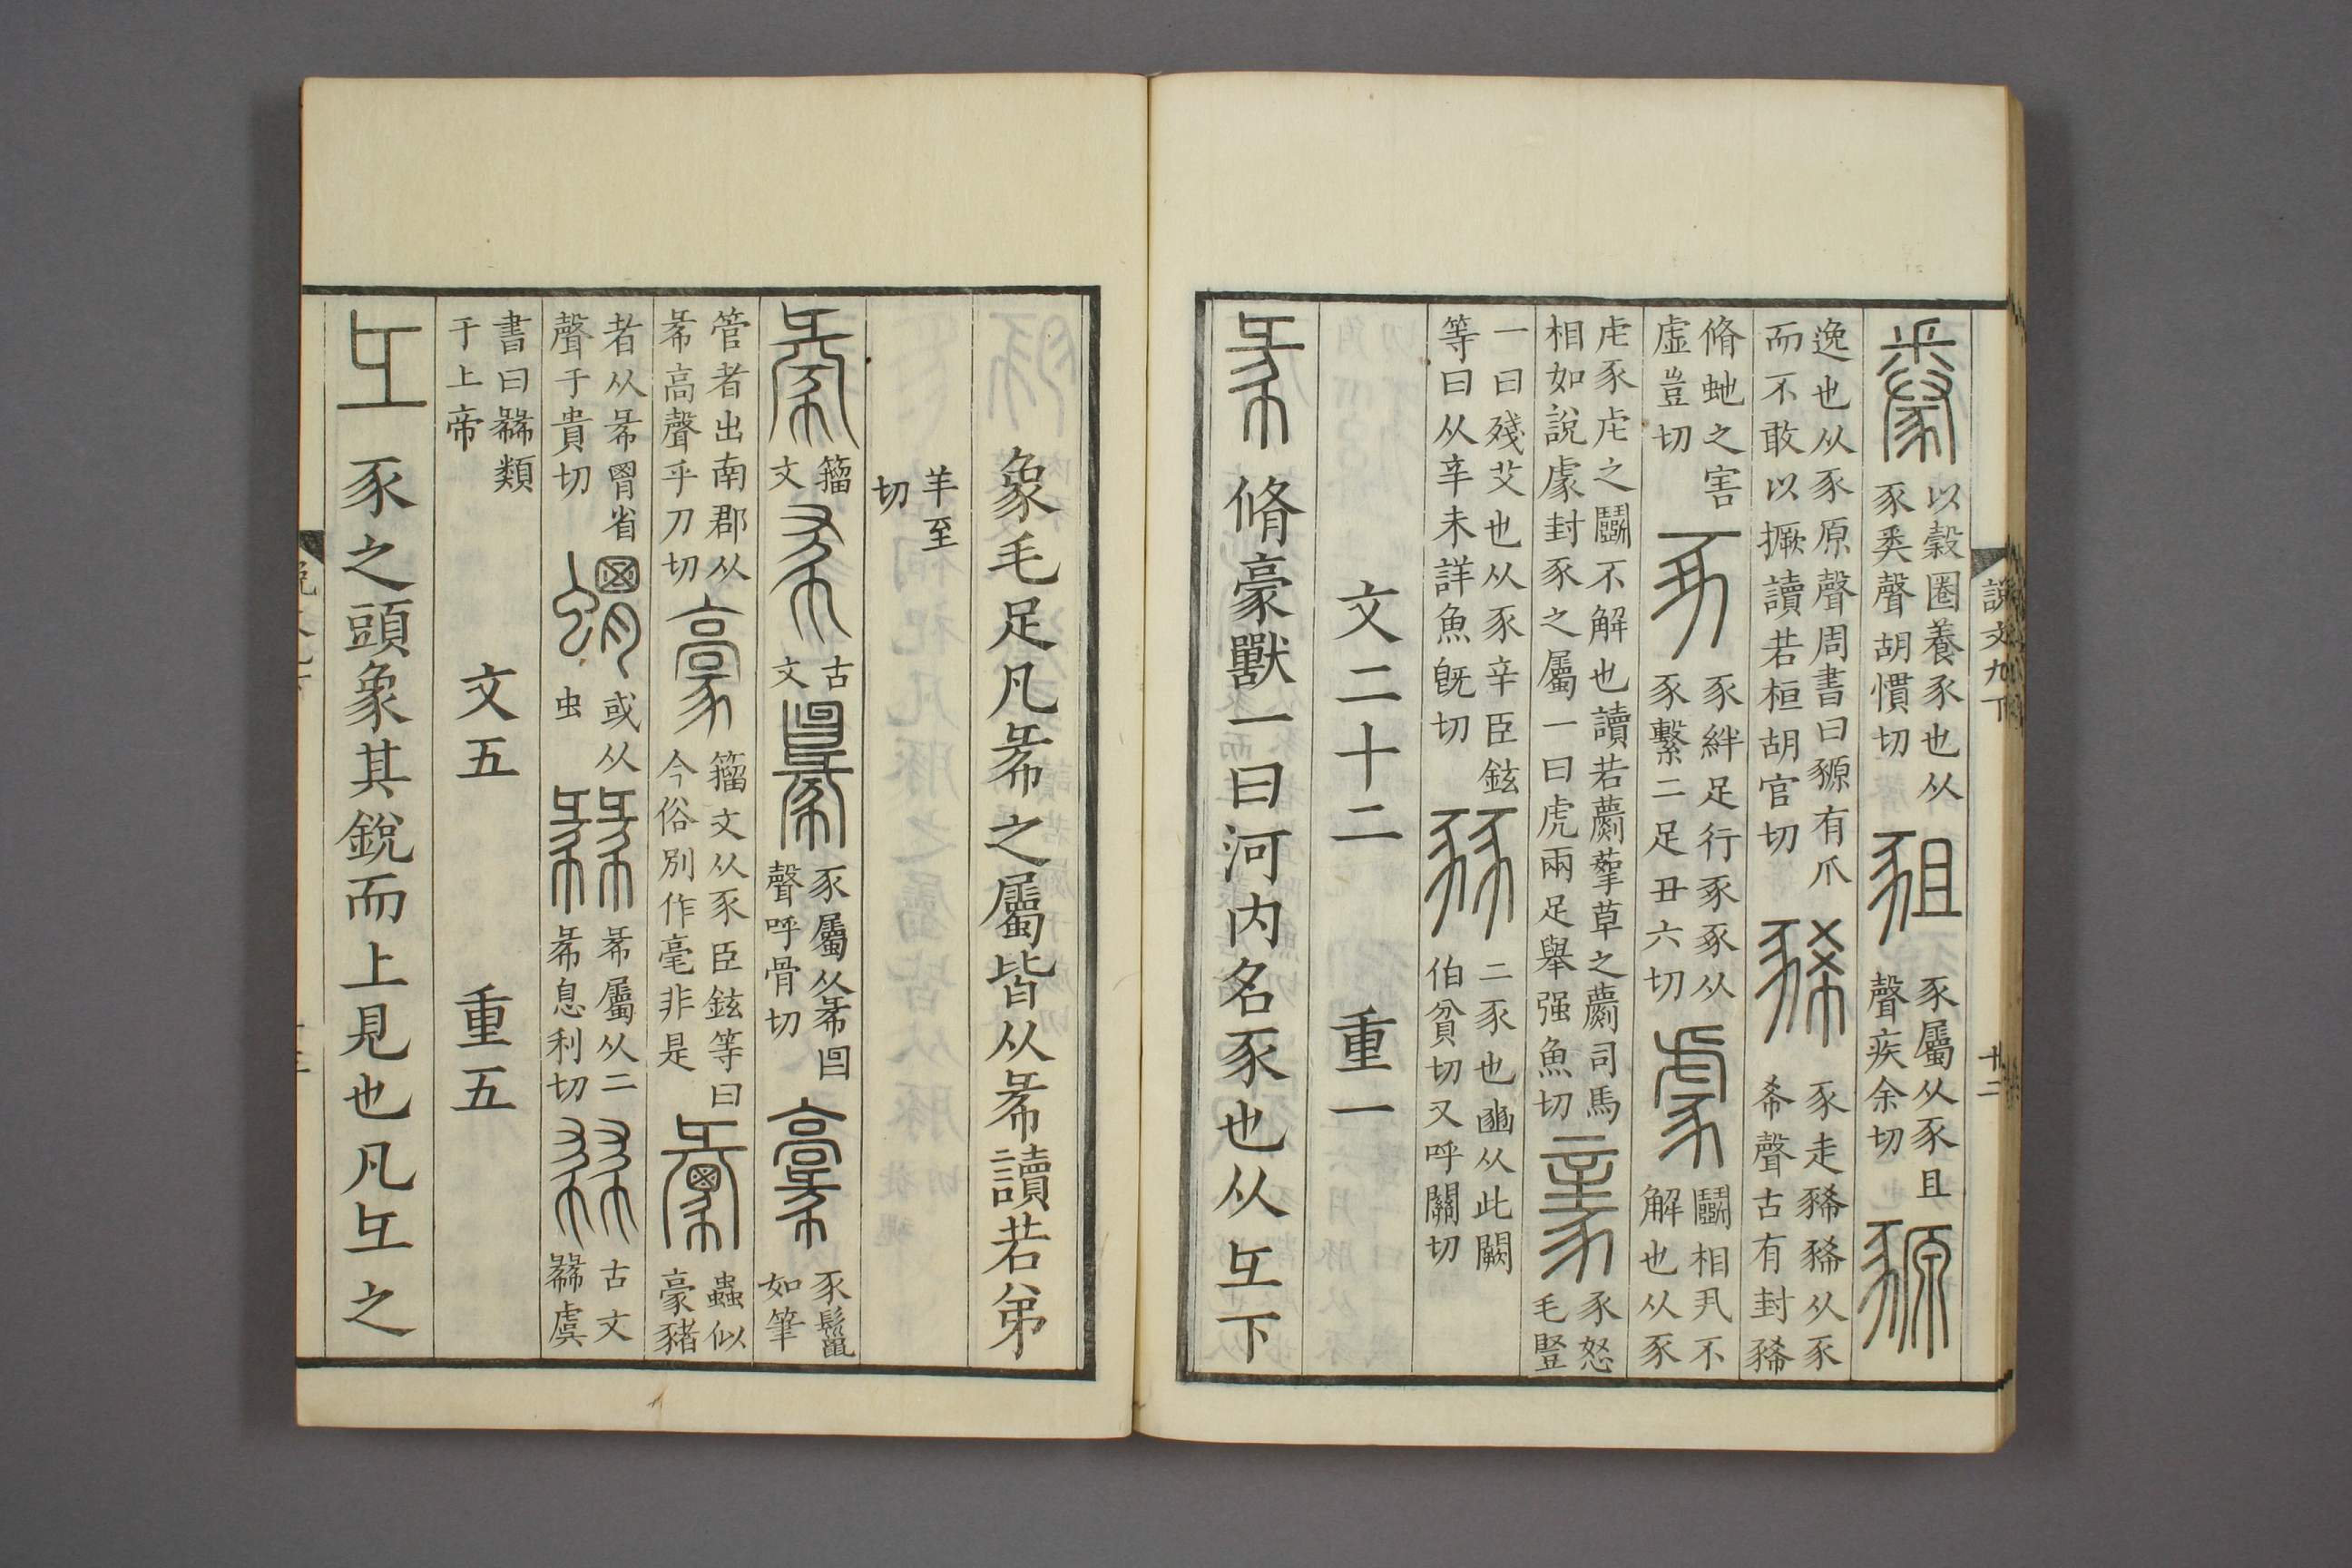 說文九下 十二
豢 以穀圈養豕也从豕𢍏聲胡慣切 豠 豕屬从豕且聲疾余切 豲
逸也从豕原聲周書曰豲有爪而不敢以撅讀若桓胡官切 豨 豕走豨豨从豕希聲古有封豨
脩虵之害虛豈切 豖 豕絆足行豖豖从豕繫二足丑六切 豦 鬭相丮不解也从豕
虍豕虍之鬭不解也讀若蘮蒘草之蘮司馬相如說豦封豕之屬一曰虎兩足舉强魚切 豙 豕怒毛豎
一曰殘艾也从豕辛臣鉉等曰从辛未詳魚旣切 豩 二豕也豳从此闕伯貧切又呼關切
文二十二 重一
㣇 脩豪獸一曰河内名豕也从彑下
象毛足凡㣇之屬皆从㣇讀若弟
羊至切
㣇 籀文 㣇 古文 𢑩 豕屬从㣇𥄎聲呼骨切 豪 豕鬣如筆
管者出南郡从㣇高聲乎刀切 豪 籀文从豕臣鉉等曰今俗別作毫非是 彙 蟲似豪豬
者从㣇胃省聲于貴切 蝟 或从虫 𢑹 㣇屬从二㣇息利切 𢑹 古文𢑹虞
書曰𢑹類于上帝 文五 重五
彑 豕之頭象其銳而上見也凡彑之